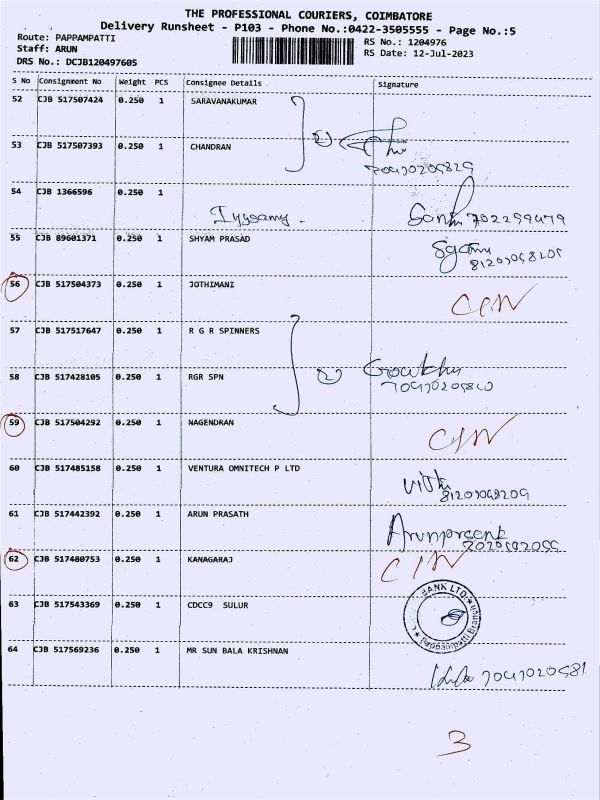 THE PROFESSIONAL COURIERS, COIMBATORE
Delivery Runsheet - P103 - Phone No.:0422-3505555 - Page No.:5
Route: PAPPAMPATTI
Staff: ARUN
DRS No.: DCJB120497605
RS No.: 1204976
RS Date: 12-Jul-2023
S No Consignment No Weight PCS Consignee Details Signature
52 CJB 517507424 0.250 1 SARAVANAKUMAR
53 CJB 517507393 0.250 1 CHANDRAN
54 CJB 1366596 0.250 1
Iyysamy.
55 CJB 89601371 0.250 1 SHYAM PRASAD
56 CJB 517504373 0.250 1 JOTHIMANI
57 CJB 517517647 0.250 1 R G R SPINNERS
58 CJB 517428105 0.250 1 RGR SPN
59 CJB 517504292 0.250 1 NAGENDRAN
60 CJB 517485158 0.250 1 VENTURA OMNITECH P LTD
61 CJB 517442392 0.250 1 ARUN PRASATH
62 CJB 517480753 0.250 1 KANAGARAJ
63 CJB 517543369 0.250 1 CDCC9 SULUR
BANK LTD.
Pappampatti Branch
64 CJB 517569236 0.250 1 MR SUN BALA KRISHNAN
3